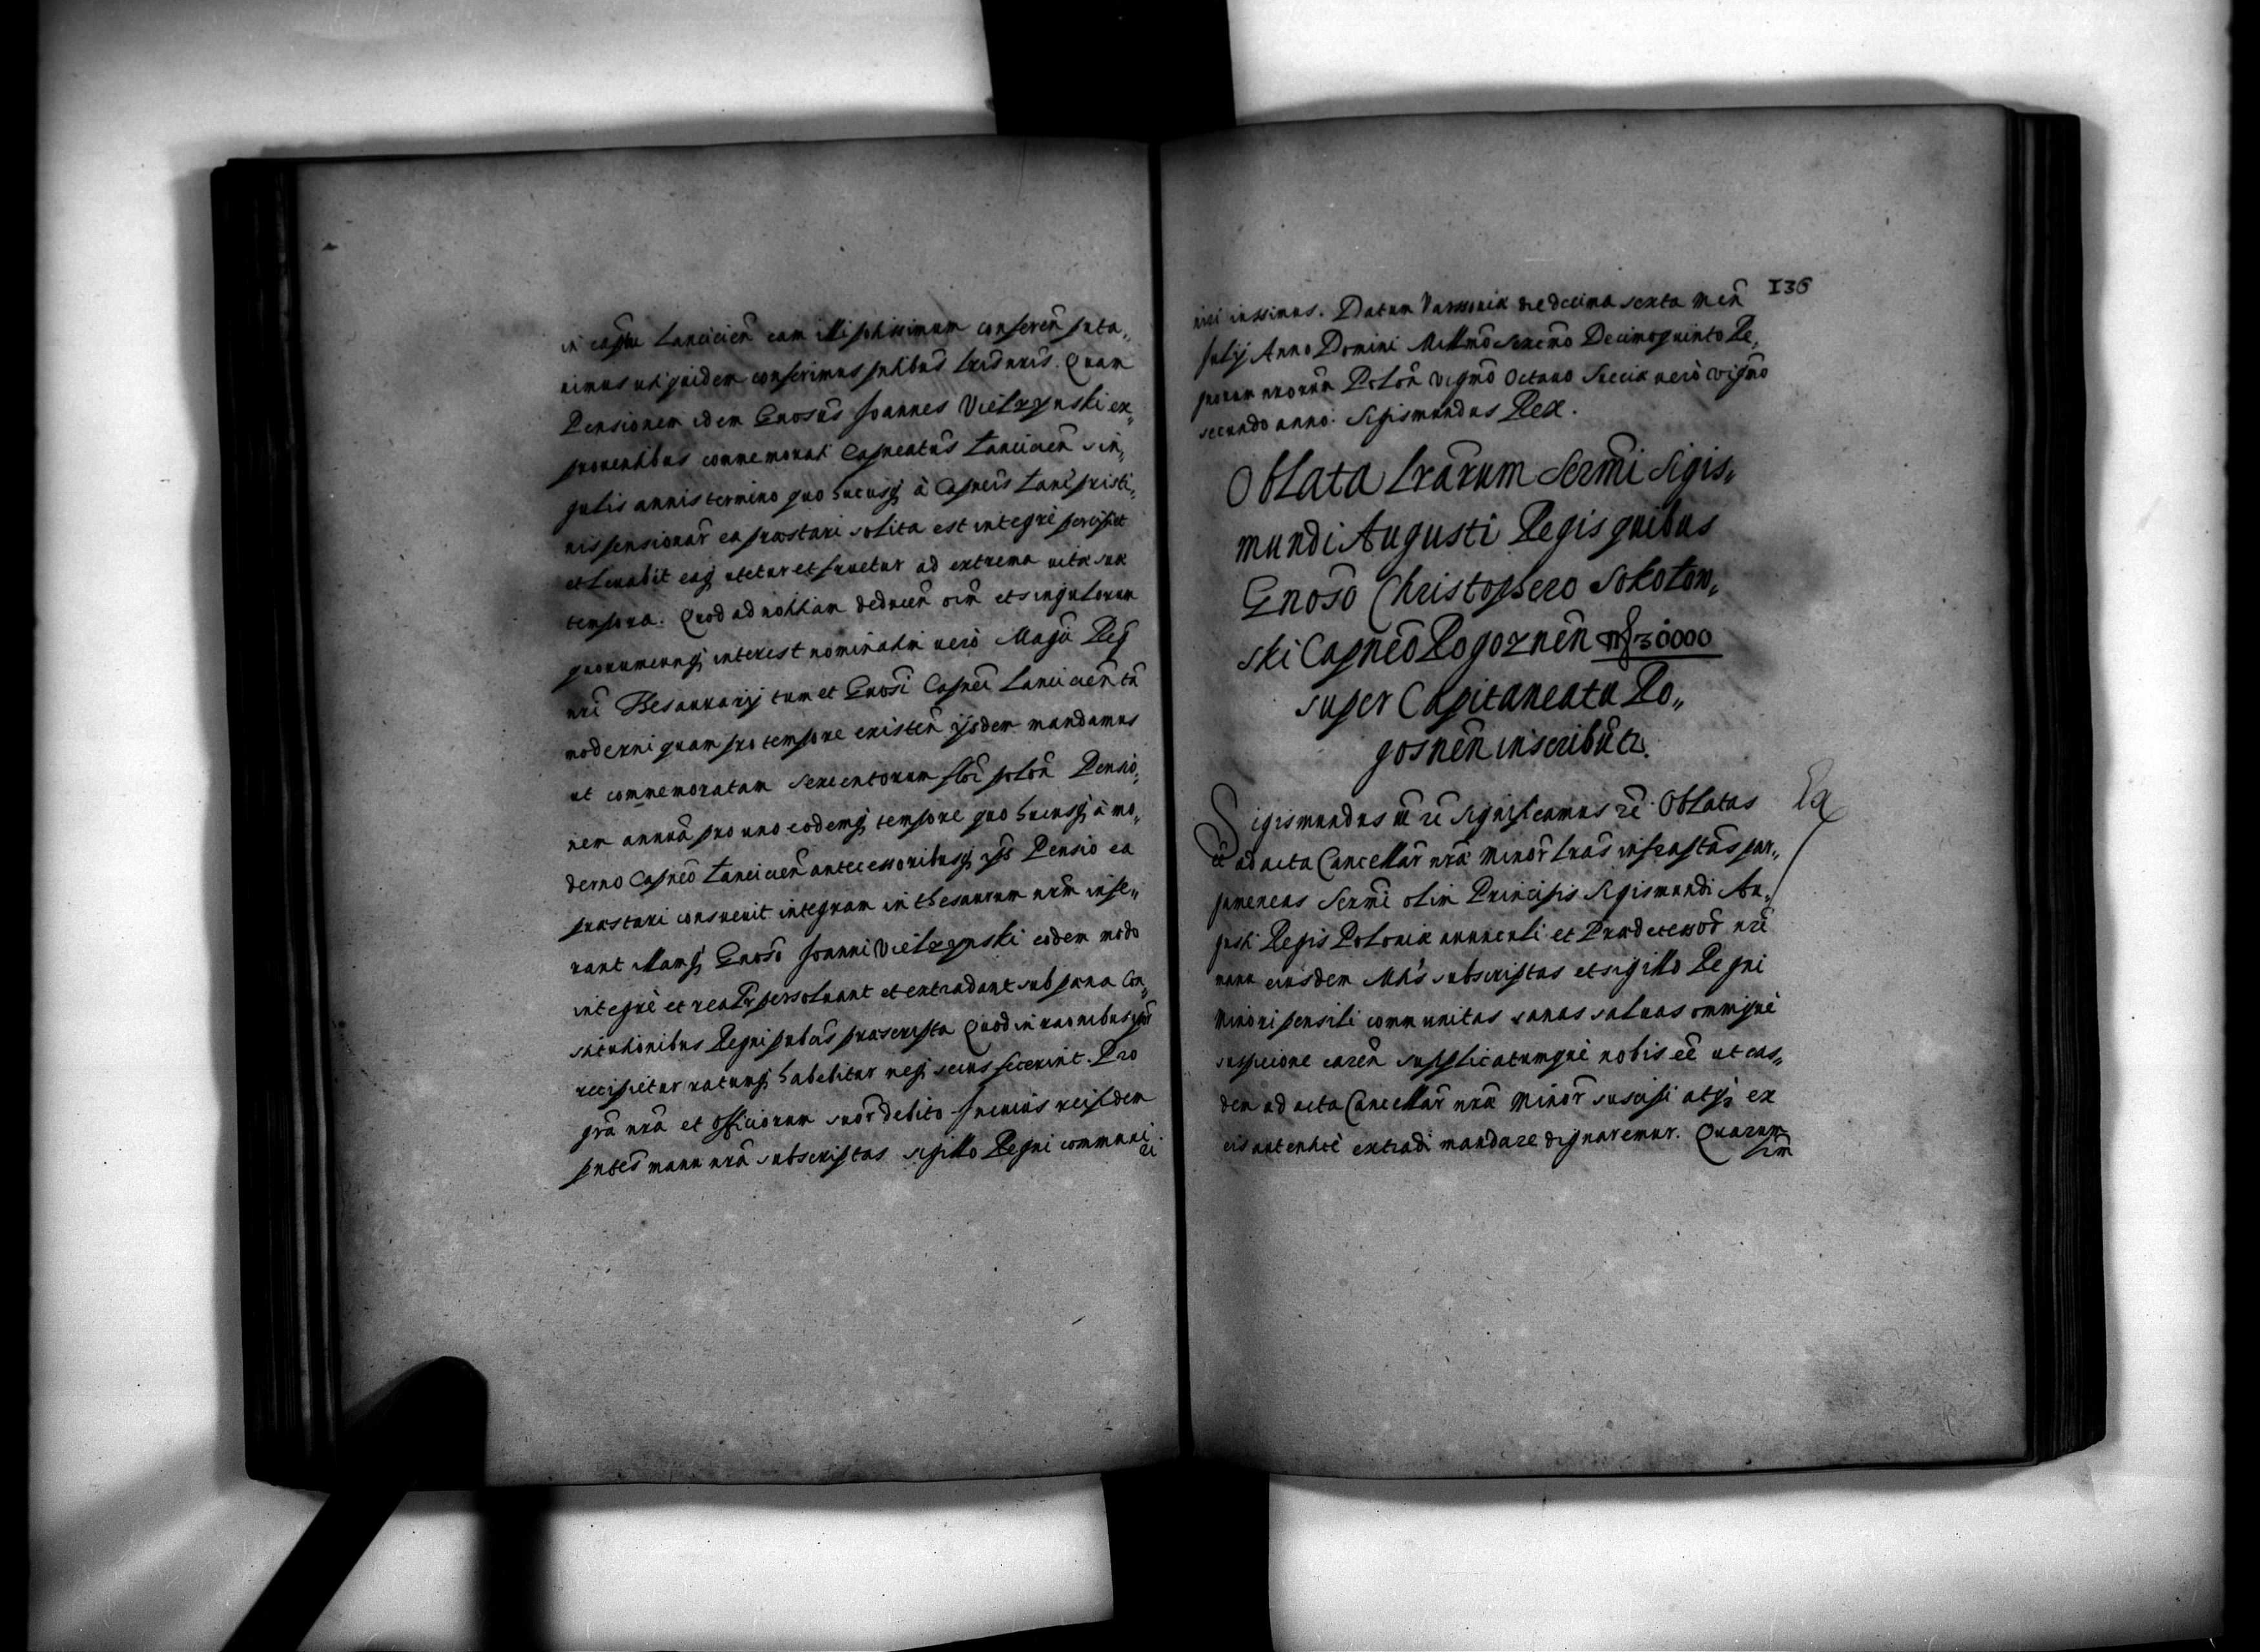 in captu Lanicien eam illi potissimum conferen puta„
uimus uti quidem conferimus pntibus Lris nris. Quam
Pensionem idem Gnosus Joannes Vielzynski ex„
prouentibus commemorati Capneatus Lanicien sin„
gulis annis termino quo hucusq à Capneis Lanc pristi„
nis pensionar ea præstari solita est integrè percipiet
et leuabit eaq utetur et fruetur ad extrema vitæ suæ
tempora. Quod ad notitiam deducen oim et singulorum
quorumcunq interest nominatim verò Magci Reg
nri Thesaurarij tum et Gnosi Capnei Lanicien tã
moderni quam pro tempore existen ijsdem mandamus
ut commemoratam sexcentorum flor polon Pensio„
nem annuã pro uno eodemq tempore quo hucusq à mo„
derno Capneo Lanicien antecessoribusq ipsi Pensio ea
præstari consueuit integram in thesaurum nrm infe„
rant illamq Gnoso Joanni Vielzynski eodem modo
integrè et realr persoluant et extradant sub pæna Con„
stitutionibus Regni pubcis præscripta Quod in raonibus ipsor
recipietur ratumq habebitur neq secus fecerint. Pro
grã nrã et officiorum suor debito In cuius rei fidem
pntes manu nrã subscriptas sigillo Regni communi
ri
136
niri iussimus. Datum Varsouiæ die decima sexta Men
Julij Anno Domini Millmo Sexcmo Decimoquinto Re„
gnorum nrorum Polon vigmo Octauo Sueciæ verò vigmo
secundo anno. Sigismundus Rex.
Oblata Lrarum Sermi Sigis„
mundi Augusti Regis quibus
Gnoso Christophero Sokolow„
ski Capneo Rogoznen mf 30000
super Capitaneatu Ro„
gosnen inscribütr.
Sigismundus III rc Significamus rc Oblatas Ra
ee ad acta Cancellar nræ Minor Lras infrascptas par„
gameneas Sermi olim Principis Sigismundi Au„
gusti Regis Poloniæ auunculi et Prædecessor nri
manu eiusdem Mtis subscriptas et sigillo Regni
Minori pensili communitas sanas saluas omniquè
suspicione caren supplicatumquè nobis ee ut eas„
dem ad acta Cancellar nræ Minor suscipi atq ex
eis autenticè extradi mandare dignaremur. Quarum